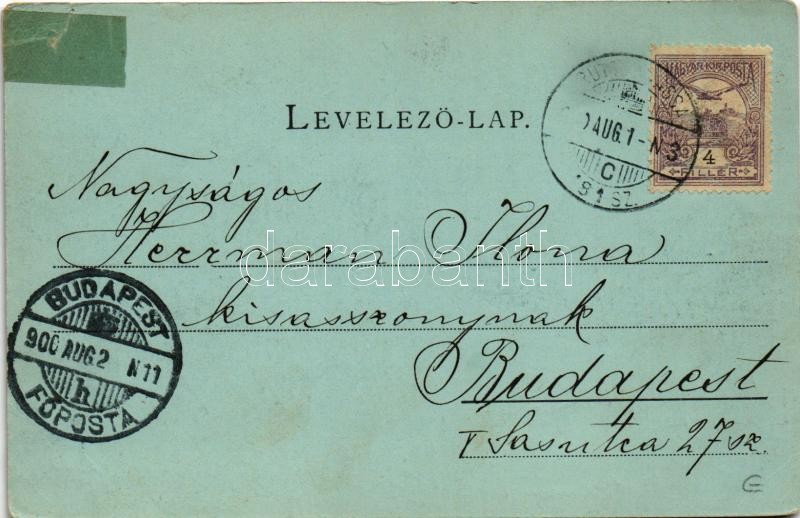 LEVELEZŐ-LAP.
MAGYAR KIR. POSTA
4
FILLÉR
AUG. 1 - N 3
C
SZ.
Nagyságos
Herrman Ilona
kisasszonynak
Budapest
V Sas utca 27 sz.
BUDAPEST
900 AUG 2 N 11
h
FŐPOSTA
darabanth